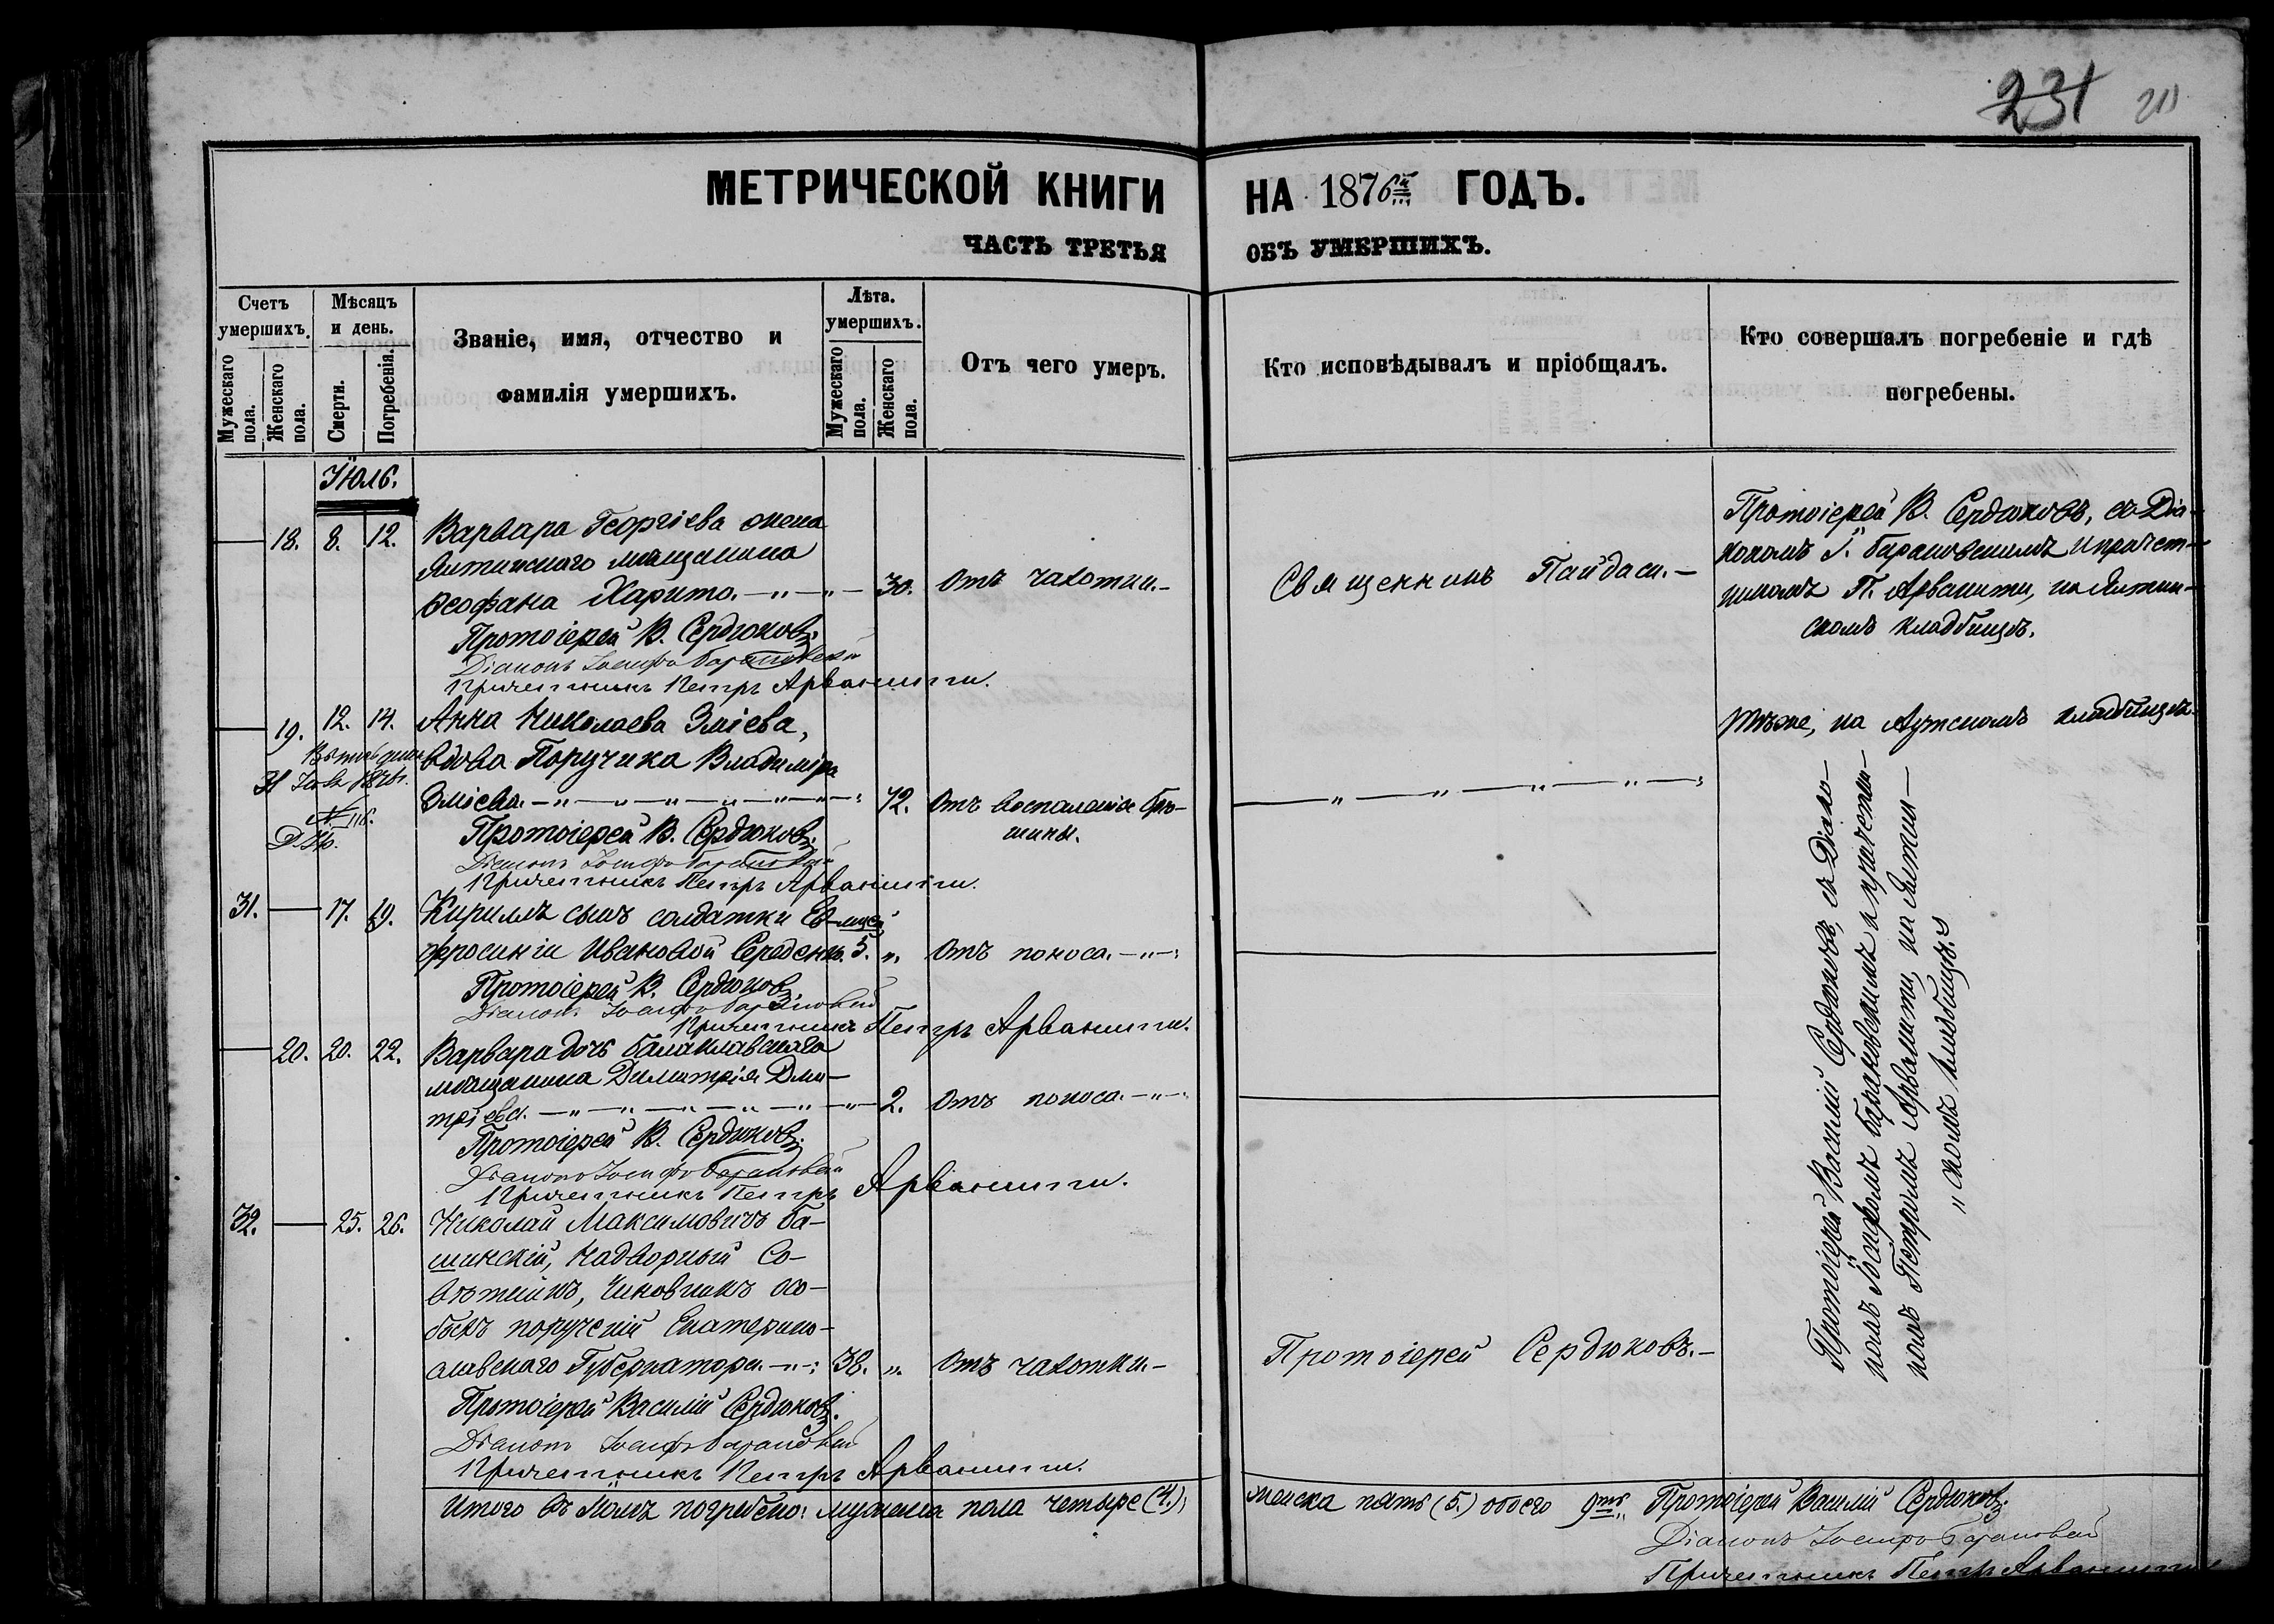 231 211
МЕТРИЧЕСКОЙ КНИГИ НА 1876й ГОДЪ.
ЧАСТЬ ТРЕТЬЯ ОБЪ УМЕРШИХЪ.
Счетъ умершихъ.
Мужескаго пола.
Женскаго пола.
Мѣсяцъ и день.
Смерти.
Погребенія.
Званіе, имя, отчество и
фамилія умершихъ.
Лѣта. умершихъ.
Мужескаго пола.
Женскаго пола.
Отъ чего умеръ.
Кто исповѣдывалъ и пріобщалъ.
Кто совершалъ погребеніе и гдѣ
погребены.
Июль.
18. 8. 12. Варвара Георгіева жена
Ялтинскаго мѣщанина
Ѳеофана Харито. 30. Отъ чахотки.
Священникъ Пайдаси.
Протоіерей В. Сердюковъ, съ Діа-
кономъ І. Барановскимъ и причет-
никомъ П. Арванити, на Ялтин-
скомъ кладбищѣ.
Протоіерей В. Сердюковъ.
Діаконъ Іосифъ Барановскій
Причетникъ Петръ Арванити.
19. 12. 14. Анна Николаева Зміева,
вдова Поручика Владиміра
Зміева. 72. Отъ воспаленія брю-
шины.
31 1876г.
N. 116.
Тѣже, на Аутскомъ кладбищѣ.
Протоіерей В. Сердюковъ.
Діаконъ Іосифъ Барановскій
Причетникъ Петръ Арванити.
31. 17. 19. Кириллъ сынъ солдатки Ев-
фросиніи Ивановой Середенк. 5. мцсв „ Отъ поноса.
Протоіерей В. Сердюковъ.
Діаконъ Іосифъ Барановскій
Причетникъ Петръ Арванити.
20. 20. 22. Варвара дочь балаклавскаго
мѣщанина Димитрія Дми-
тріева. 2. Отъ поноса.
Протоіерей В. Сердюковъ.
Діаконъ Іосифъ Барановскій
Причетникъ Петръ Арванити.
32. 25. 26. Николай Максимовичъ Ба-
шинскій, Надворный Со-
вѣтникъ, Чиновникъ осо-
быхъ порученій Екатерино-
славскаго Губернатора. 38. „ Отъ чахотки.
Протоіерей Сердюковъ.
Протоіерей Василій Сердюковъ, съ Діако-
номъ Іосифомъ Барановскимъ и причетни-
комъ Петромъ Арванити, на Ялтин-
скомъ кладбищѣ.
Протоіерей Василій Сердюковъ.
Діаконъ Іосифъ Барановскій
Причетникъ Петръ Арванити.
Итого въ Іюлѣ погребено: мужеска пола четыре (4.), женска пять (5.) обоего 9ть
Протоіерей Василій Сердюковъ.
Діаконъ Іосифъ Барановскій
Причетникъ Петръ Арванити